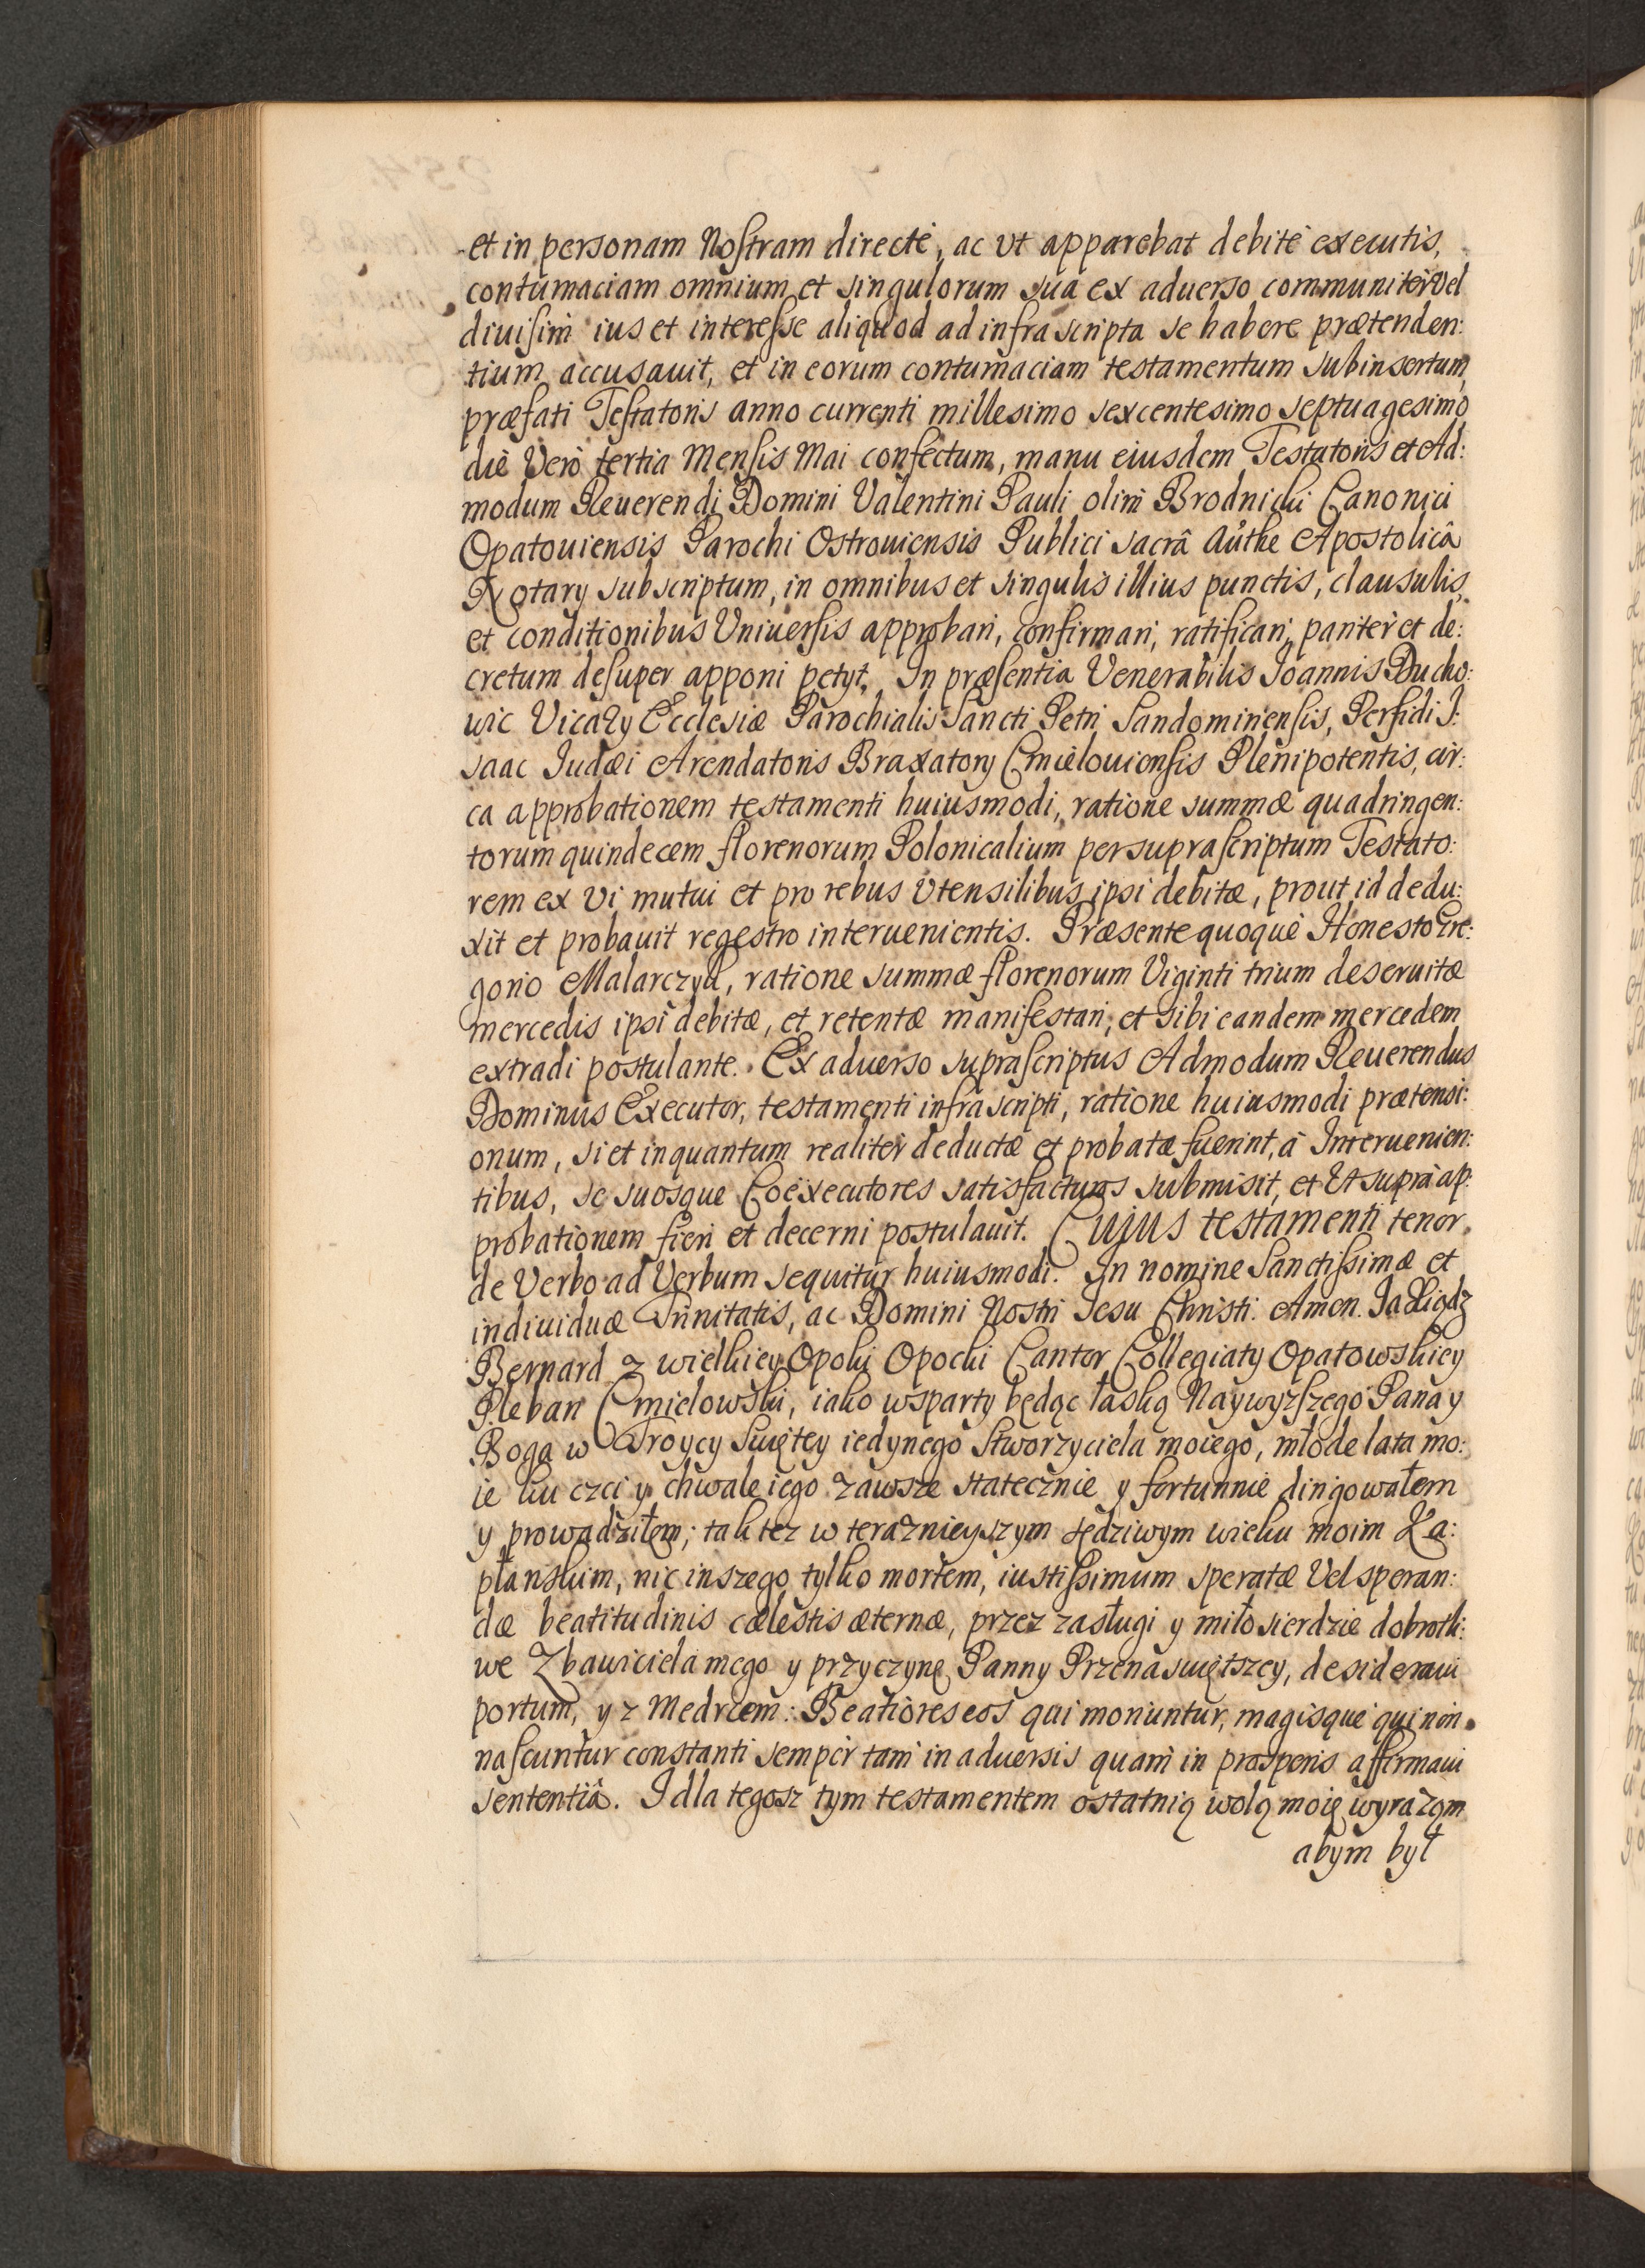 et in personam Nostram directè, ac ut apparebat debitè executis,
contumaciam omnium et singulorum sua ex aduerso communiter vel
diuisim ius et interesse aliquod ad infrascripta se habere prætenden:
tium accusauit, et in eorum contumaciam testamentum subinsertum,
præfati Testatoris anno currenti millesimo sexcentesimo septuagesimo
die Verò tertia Mensis Mai confectum, manu eiusdem Testatoris et Ad:
modum Reuerendi Domini Valentini Pauli olim Brodnicki Canonici
Opatouiensis Parochi Ostrouiensis Publici sacrâ Authe Apostolicâ
Notary subscriptum, in omnibus et singulis illius punctis, clausulis,
et conditionibus Uniuersis approbari, confirmari, ratificari, pariter et de:
cretum desuper apponi petyt. In præsentia Venerabilis Joannis Ducho:
wic Vicary Ecclesiæ Parochialis Sancti Petri Sandomiriensis, Perfidi I:
saac Iudæi Arendatoris Braxatory Cmielouiensis Plenipotentis, cir:
ca approbationem testamenti huiusmodi, ratione summæ quadringen:
torum quindecem florenorum Polonicalium per suprascriptum Testato:
rem ex vi mutui et pro rebus Utensilibus ipsi debitæ, prout id dedu:
xit et probauit regestro interuenientis. Præsente quoque Honesto Gre:
gorio Malarczyk, ratione summæ florenorum Viginti trium deseruitæ
mercedis ipsi debitæ, et retentæ manifestari, et sibi eandem mercedem
extradi postulante. Ex aduerso suprascriptus Admodum Reuerendus
Dominus Executor, testamenti infrascripti, ratione huiusmodi prætensi:
onum, si et inquantum realiter deductæ et probatæ fuerint, à Interuenien:
tibus, se suosque Coexecutores satisfacturos submisit, et Ut supra ap:
probationem fieri et decerni postulauit. Cujus testamenti tenor
de Verbo ad Verbum sequitur huiusmodi. In nomine Sanctissimæ et
indiuiduæ Trinitatis, ac Domini Nostri Jesu Christi. Amen. Ja Xiądz
Bernard z wielkiey Opoki Opocki Cantor Collegiaty Opatowskiey
Pleban Cmielowski, iako wsparty będąc łaską Naywyższego Pana y
Boga w Troycy Swiętey iedynego Stworzyciela moiego, młode lata mo:
ie ku czci y chwale iego zawsze statecznie y fortunnie dirigowałem
y prowadziłem; tak tez w teraznieyszym sędziwym wieku moim Ka:
płanskim, nic inszego tylko mortem, iustissimum speratæ Vel speran:
dæ beatitudinis cælestis æternæ, przez zasługi y miłosierdzie dobrotli:
we Zbawiciela mego y przyczynę Panny Przenaswiętszey, desideraui
portum, y z Medrcem: Beatiores eos qui moriuntur, magisque qui non
nascuntur constanti semper tam in aduersis quam in prosperis affirmaui
sententiâ. I dla tegosz tym testamentem ostatnią wolą moię wyrażąm
abym był